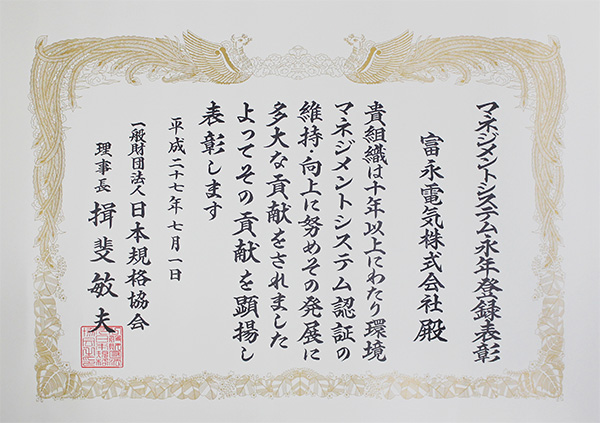 マネジメントシステム永年登録表彰
富永電気株式会社殿
貴組織は十年以上にわたり環境
マネジメントシステム認証の
維持・向上に努めその発展に
多大な貢献をされました
よってその貢献を顕揚し
表彰します
平成二十七年七月一日
一般財団法人日本規格協会
理事長 揖斐敏夫